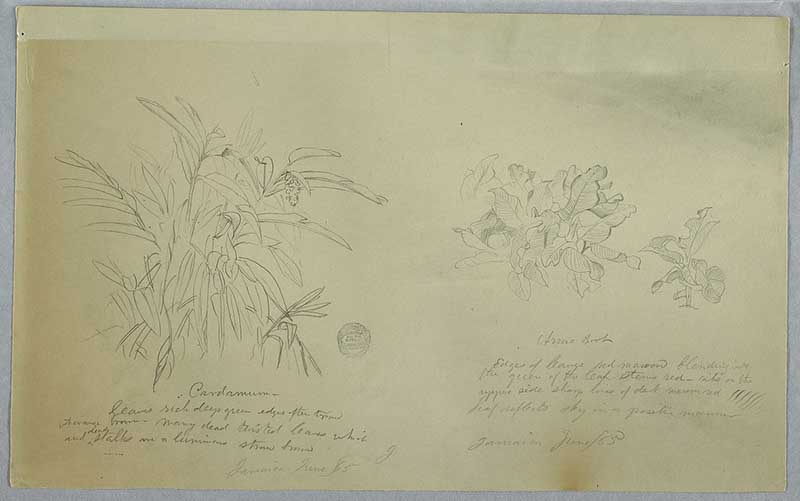 Cardamum –
Leaves rich deep green edges often torn
orange brown – many dead twisted leaves which
and dead stalks are a luminous straw brown
Jamaica June 65
Arrow Root
Edges of leaves red maroon blending into
the green of the leaf stems red – ribs on the
upper side sharp lines of dark maroon red
leaf reflects sky in a positive manner
Jamaica June/65